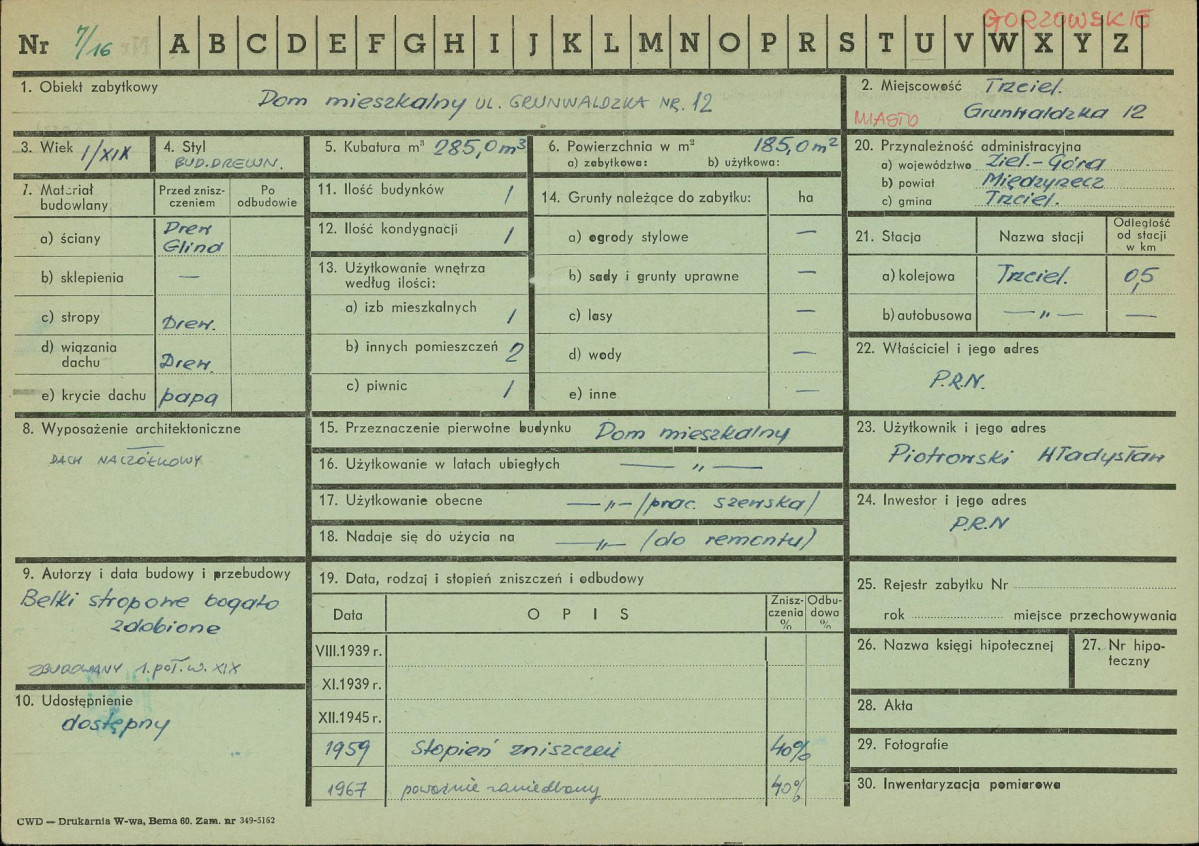 GORZOWSKIE
Nr 7/16 A B C D E F G H I J K L M N O P R S T U V W X Y Z
1. Obiekt zabytkowy
Dom mieszkalny UL. GRUNWALDZKA NR. 12
2. Miejscowość Trzciel.
MIASTO Grunwaldzka 12
3. Wiek I/XIX
4. Styl
BUD. DREWN.
5. Kubatura m³ 285,0 m³
6. Powierzchnia w m² 185,0 m²
a) zabytkowa: b) użytkowa:
20. Przynależność administracyjna
a) województwo Ziel.-Góra
b) powiat Międzyrzecz
c) gmina Trzciel.
7. Materiał budowlany
Przed zniszczeniem
Po odbudowie
a) ściany Drew Glina
b) sklepienia —
c) stropy Drew.
d) wiązania dachu Drew.
e) krycie dachu papa
11. Ilość budynków 1
12. Ilość kondygnacji 1
13. Użytkowanie wnętrza
według ilości:
a) izb mieszkalnych 1
b) innych pomieszczeń 2
c) piwnic 1
14. Grunty należące do zabytku: ha
a) ogrody stylowe —
b) sady i grunty uprawne —
c) lasy —
d) wody —
e) inne —
21. Stacja Nazwa stacji Odległość od stacji w km
a) kolejowa Trzciel. 0,5
b) autobusowa — „ — —
22. Właściciel i jego adres
P.R.N.
8. Wyposażenie architektoniczne
DACH NACZÓŁKOWY
15. Przeznaczenie pierwotne budynku Dom mieszkalny
16. Użytkowanie w latach ubiegłych — „ —
17. Użytkowanie obecne — „ — /prac. szewska/
18. Nadaje się do użycia na — „ — /do remontu/
23. Użytkownik i jego adres
Piotrowski Władysław
24. Inwestor i jego adres
P.R.N
9. Autorzy i data budowy i przebudowy
Belki stropowe bogato
zdobione
ZBUDOWANY 1. POŁ. W. XIX
10. Udostępnienie
dostępny
19. Data, rodzaj i stopień zniszczeń i odbudowy
Data OPIS Zniszczenia % Odbudowa %
VIII.1939 r.
XI.1939 r.
XII.1945 r.
1959 Stopień zniszczeń 40%
1967 poważnie zaniedbany 40%
25. Rejestr zabytku Nr
rok miejsce przechowywania
26. Nazwa księgi hipotecznej
27. Nr hipoteczny
28. Akta
29. Fotografie
30. Inwentaryzacja pomiarowa
CWD — Drukarnia W-wa, Bema 60. Zam. nr 349-5162